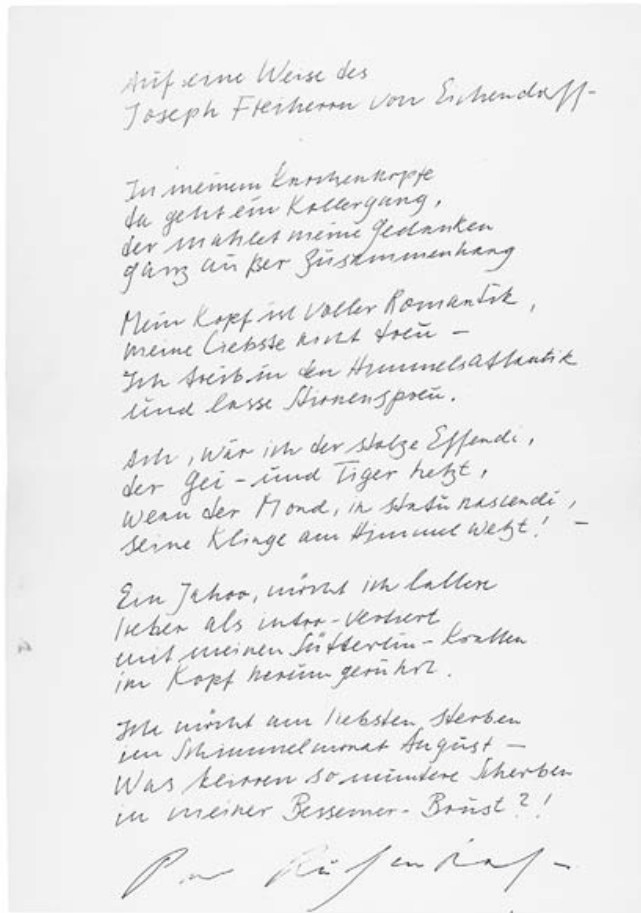 Auf eine Weise des
Joseph Freiherrn von Eichendorff -
In meinem Knochenkopfe
da geht ein Kollergang,
der mahlet meine Gedanken
ganz außer Zusammenhang
Mein Kopf ist voller Romantik,
meine Liebste nicht treu –
Ich treib in den Himmelsatlantik
und lasse Stirnenspreu.
Ach, wär ich der stolze Effendi,
der Gei- und Tiger hetzt,
wenn der Mond, in statu nascendi,
seine Klinge am Himmel wetzt! –
Ein Jahoo, möcht ich lallen
lieber als intro-vertiert
mit meinen Sütterlin-Krallen
im Kopf herumgerührt.
Ich möcht am liebsten sterben
im Schimmelmonat August –
Was klirren so muntere Scherben
in meiner Bessemer-Brust?!